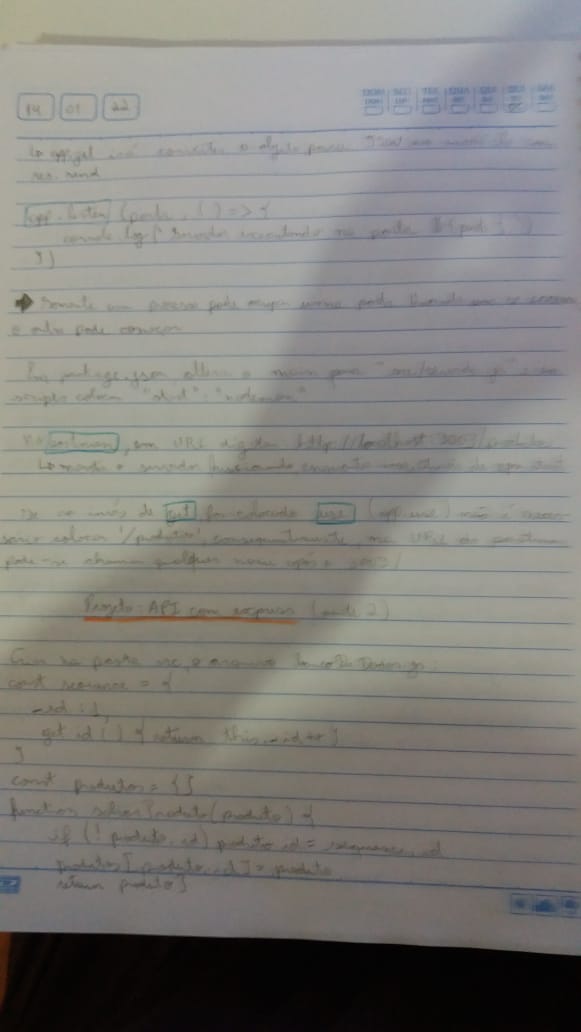 14 01 22
DOM SEG TER QUA QUI SEX SAB
↳ app.get irá converter o objeto para JSON ao invés de
res.send
app.listen (porta, () => {
console.log(`Servidor executando na porta ${porta}.`)
})
➡ Somente um processo pode ocupar uma porta. Quando um se
o outro pode começar
package.json, altera o main para "src/servidor.js" e em
scripts colocar "start": "nodemon"
No postman, em URL digitar http://localhost:3003/produtos
↳ mantém o servidor funcionando, enquanto
Se ao invés de get for colocado use (app.use) não é neces-
sário colocar '/produtos', consequentemente, na URL do postman
pode-se chamar qualquer nome após o 3003/
Projeto: API com express (parte 2)
Criar na pasta src, o arquivo bancoDeDados.js:
const sequence = {
_id: 1,
get id() { return this._id++ }
}
const produtos = {}
function salvarProduto(produto) {
if (!produto.id) produto.id = sequence.id
produtos[produto.id] = produto
return produto}